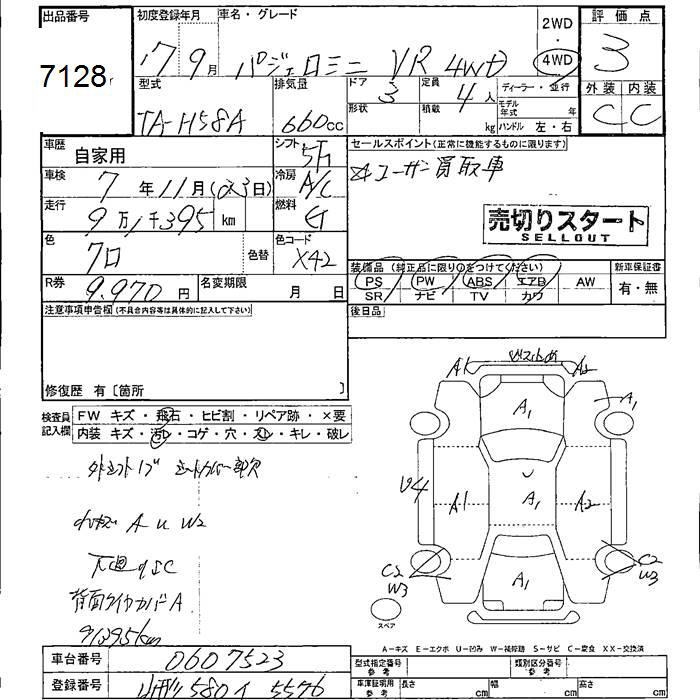 出品番号
7128
初度登録年月
17 9月
車名・グレード
パジェロミニ VR 4WD
2WD
・
4WD
評価点
3
型式
TA-H58A
排気量
660cc
ドア 3
形状
定員 4人
積載 kg
ディーラー・並行
モデル年式 年
ハンドル 左・右
外装 内装
C C
車歴 自家用
シフト 5F
車検 7年11月(23日)
冷房 A/C
走行 9万1千395km
燃料
色 クロ 色替
色コード X42
R券 9,970円
名変期限 月 日
セールスポイント(正常に機能するものに限ります)
ユーザー買取車
売切りスタート
SELLOUT
装備品(純正品に限り○をつけてください)
PS PW ABS エアB AW
SR ナビ TV カワ
新車保証書
有・無
後日品
注意事項申告欄(不具合内容等は具体的に記入して下さい)
修復歴 有〔箇所 〕
検査員記入欄
FW キズ・飛石・ヒビ割・リペア跡・×要
内装 キズ・汚レ・コゲ・穴・スレ・キレ・破レ
外シフトノブ シートカバー欠
小キズ A U W2
下廻りSC
背面タイヤカバーA
91395km
A1
A2
A1
A1
U4
A1
A1
A2
A1
C2
W3
C2
W3
スペア
A-キズ E-エクボ U-凹み W-補修跡 S-サビ C-腐食 XX-交換済
車台番号 0607523
登録番号 山形 580 イ 5576
型式指定番号 参考
類別区分番号 参考
車庫証明用 参考 長さ cm 幅 cm 高さ cm